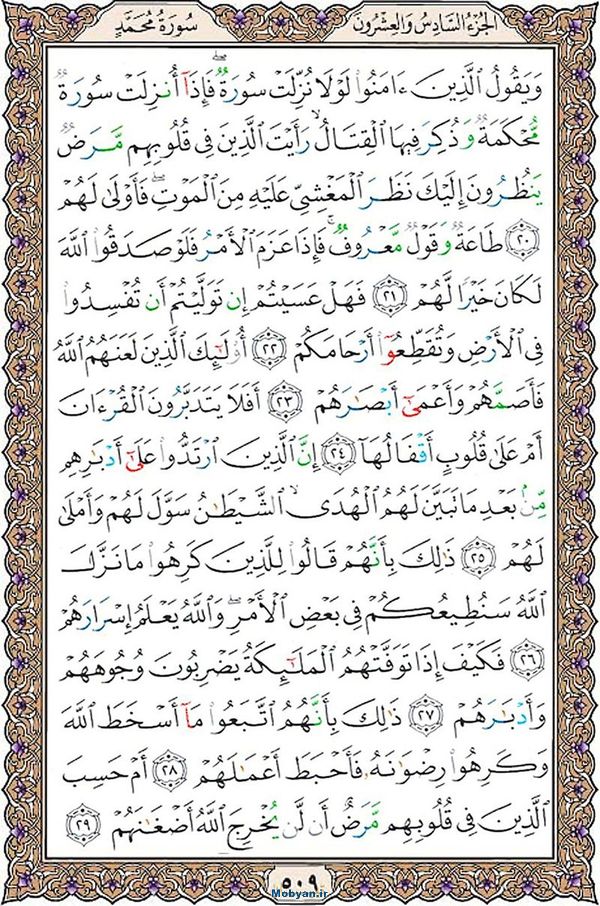 الجزء السادس والعشرون
سورة محمد
وَيَقُولُ الَّذِينَ ءَامَنُوا لَوْلَا نُزِّلَتْ سُورَةٌ ۖ فَإِذَآ أُنزِلَتْ سُورَةٌ
مُّحْكَمَةٌ وَذُكِرَ فِيهَا الْقِتَالُ ۙ رَأَيْتَ الَّذِينَ فِى قُلُوبِهِم مَّرَضٌ
يَنظُرُونَ إِلَيْكَ نَظَرَ الْمَغْشِىِّ عَلَيْهِ مِنَ الْمَوْتِ ۖ فَأَوْلَىٰ لَهُمْ
٢٠ طَاعَةٌ وَقَوْلٌ مَّعْرُوفٌ ۚ فَإِذَا عَزَمَ الْأَمْرُ فَلَوْ صَدَقُوا اللَّهَ
لَكَانَ خَيْرًا لَّهُمْ ٢١ فَهَلْ عَسَيْتُمْ إِن تَوَلَّيْتُمْ أَن تُفْسِدُوا
فِى الْأَرْضِ وَتُقَطِّعُوٓا أَرْحَامَكُمْ ٢٢ أُولَٰٓئِكَ الَّذِينَ لَعَنَهُمُ اللَّهُ
فَأَصَمَّهُمْ وَأَعْمَىٰٓ أَبْصَٰرَهُمْ ٢٣ أَفَلَا يَتَدَبَّرُونَ الْقُرْءَانَ
أَمْ عَلَىٰ قُلُوبٍ أَقْفَالُهَآ ٢٤ إِنَّ الَّذِينَ ارْتَدُّوا عَلَىٰٓ أَدْبَٰرِهِم
مِّنۢ بَعْدِ مَا تَبَيَّنَ لَهُمُ الْهُدَى ۙ الشَّيْطَٰنُ سَوَّلَ لَهُمْ وَأَمْلَىٰ
لَهُمْ ٢٥ ذَٰلِكَ بِأَنَّهُمْ قَالُوا لِلَّذِينَ كَرِهُوا مَا نَزَّلَ
اللَّهُ سَنُطِيعُكُمْ فِى بَعْضِ الْأَمْرِ ۖ وَاللَّهُ يَعْلَمُ إِسْرَارَهُمْ
٢٦ فَكَيْفَ إِذَا تَوَفَّتْهُمُ الْمَلَٰٓئِكَةُ يَضْرِبُونَ وُجُوهَهُمْ
وَأَدْبَٰرَهُمْ ٢٧ ذَٰلِكَ بِأَنَّهُمُ اتَّبَعُوا مَآ أَسْخَطَ اللَّهَ
وَكَرِهُوا رِضْوَٰنَهُ فَأَحْبَطَ أَعْمَٰلَهُمْ ٢٨ أَمْ حَسِبَ
الَّذِينَ فِى قُلُوبِهِم مَّرَضٌ أَن لَّن يُخْرِجَ اللَّهُ أَضْغَٰنَهُمْ ٢٩
٥٠٩
Mobyan.ir